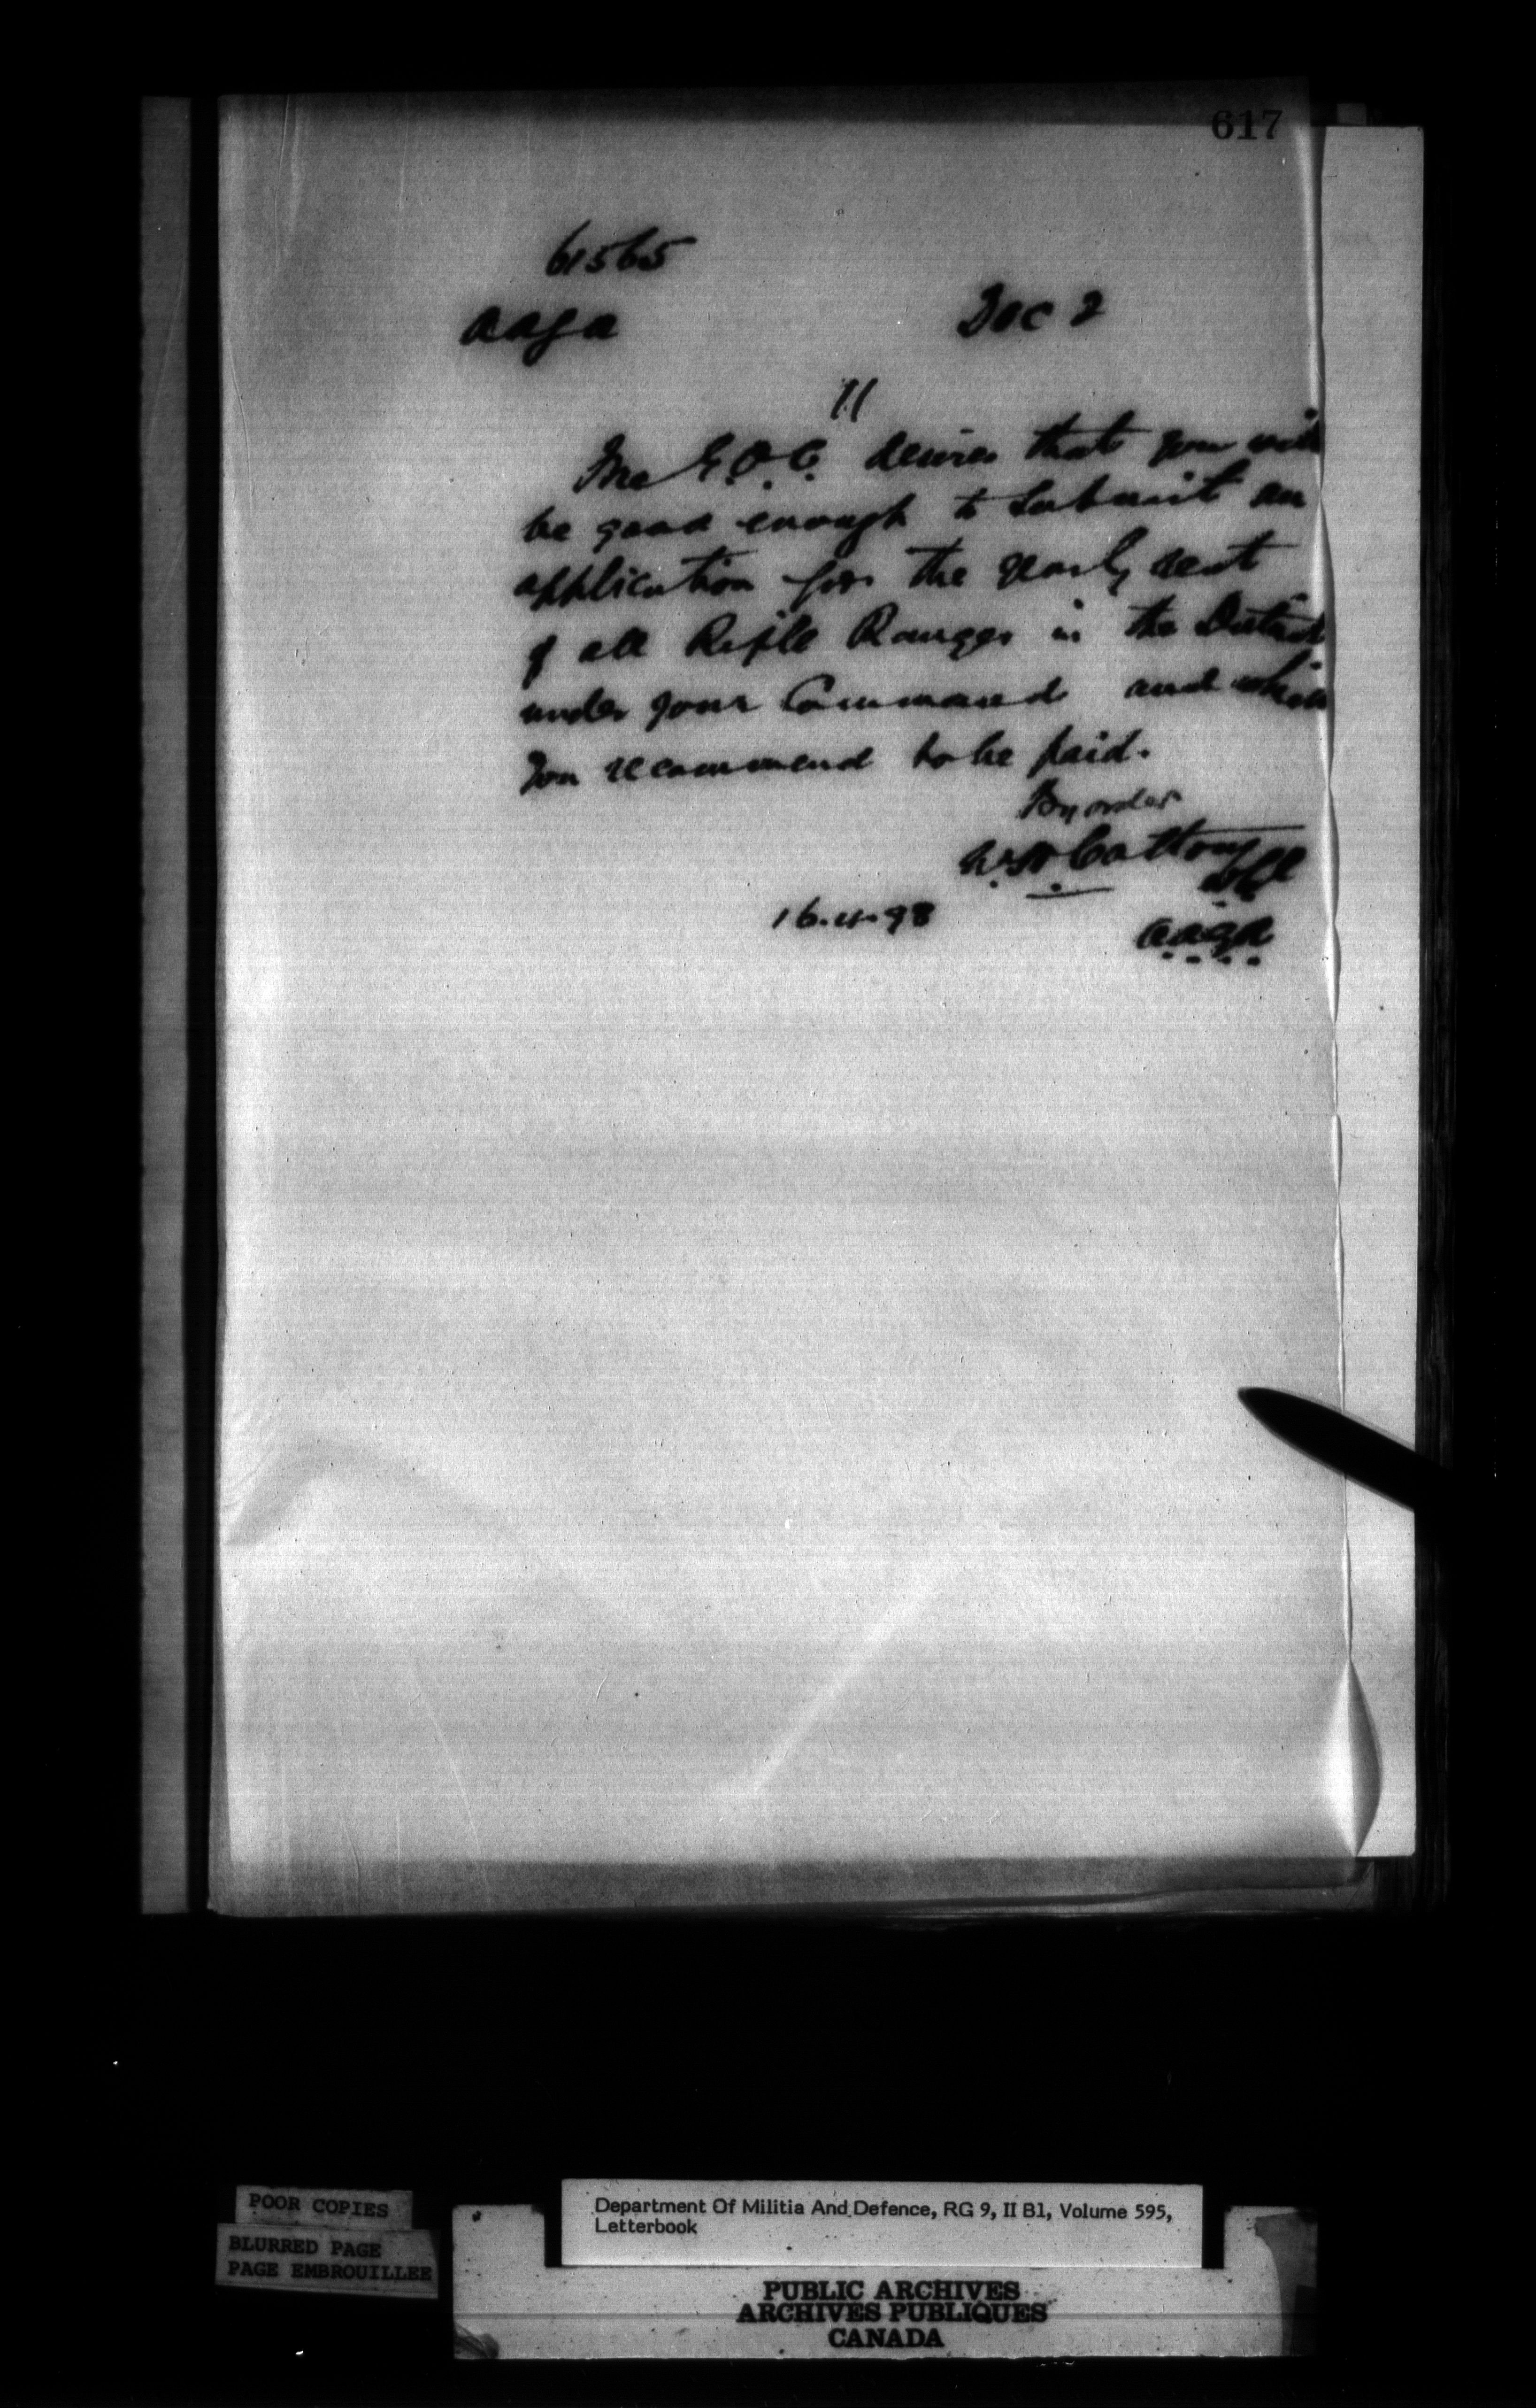 617
61565
aaga
Doc 2
11
The G.O.C. desires that you will
be good enough to submit an
application for the yearly rent
of all Rifle Ranges in the District
under your Command and which
you recommend to be paid.
By order
W.H. Cotton
16.4.98
a.a.g.a.
POOR COPIES
BLURRED PAGE
PAGE EMBROUILLEE
Department Of Militia And Defence, RG 9, II B1, Volume 595,
Letterbook
PUBLIC ARCHIVES
ARCHIVES PUBLIQUES
CANADA